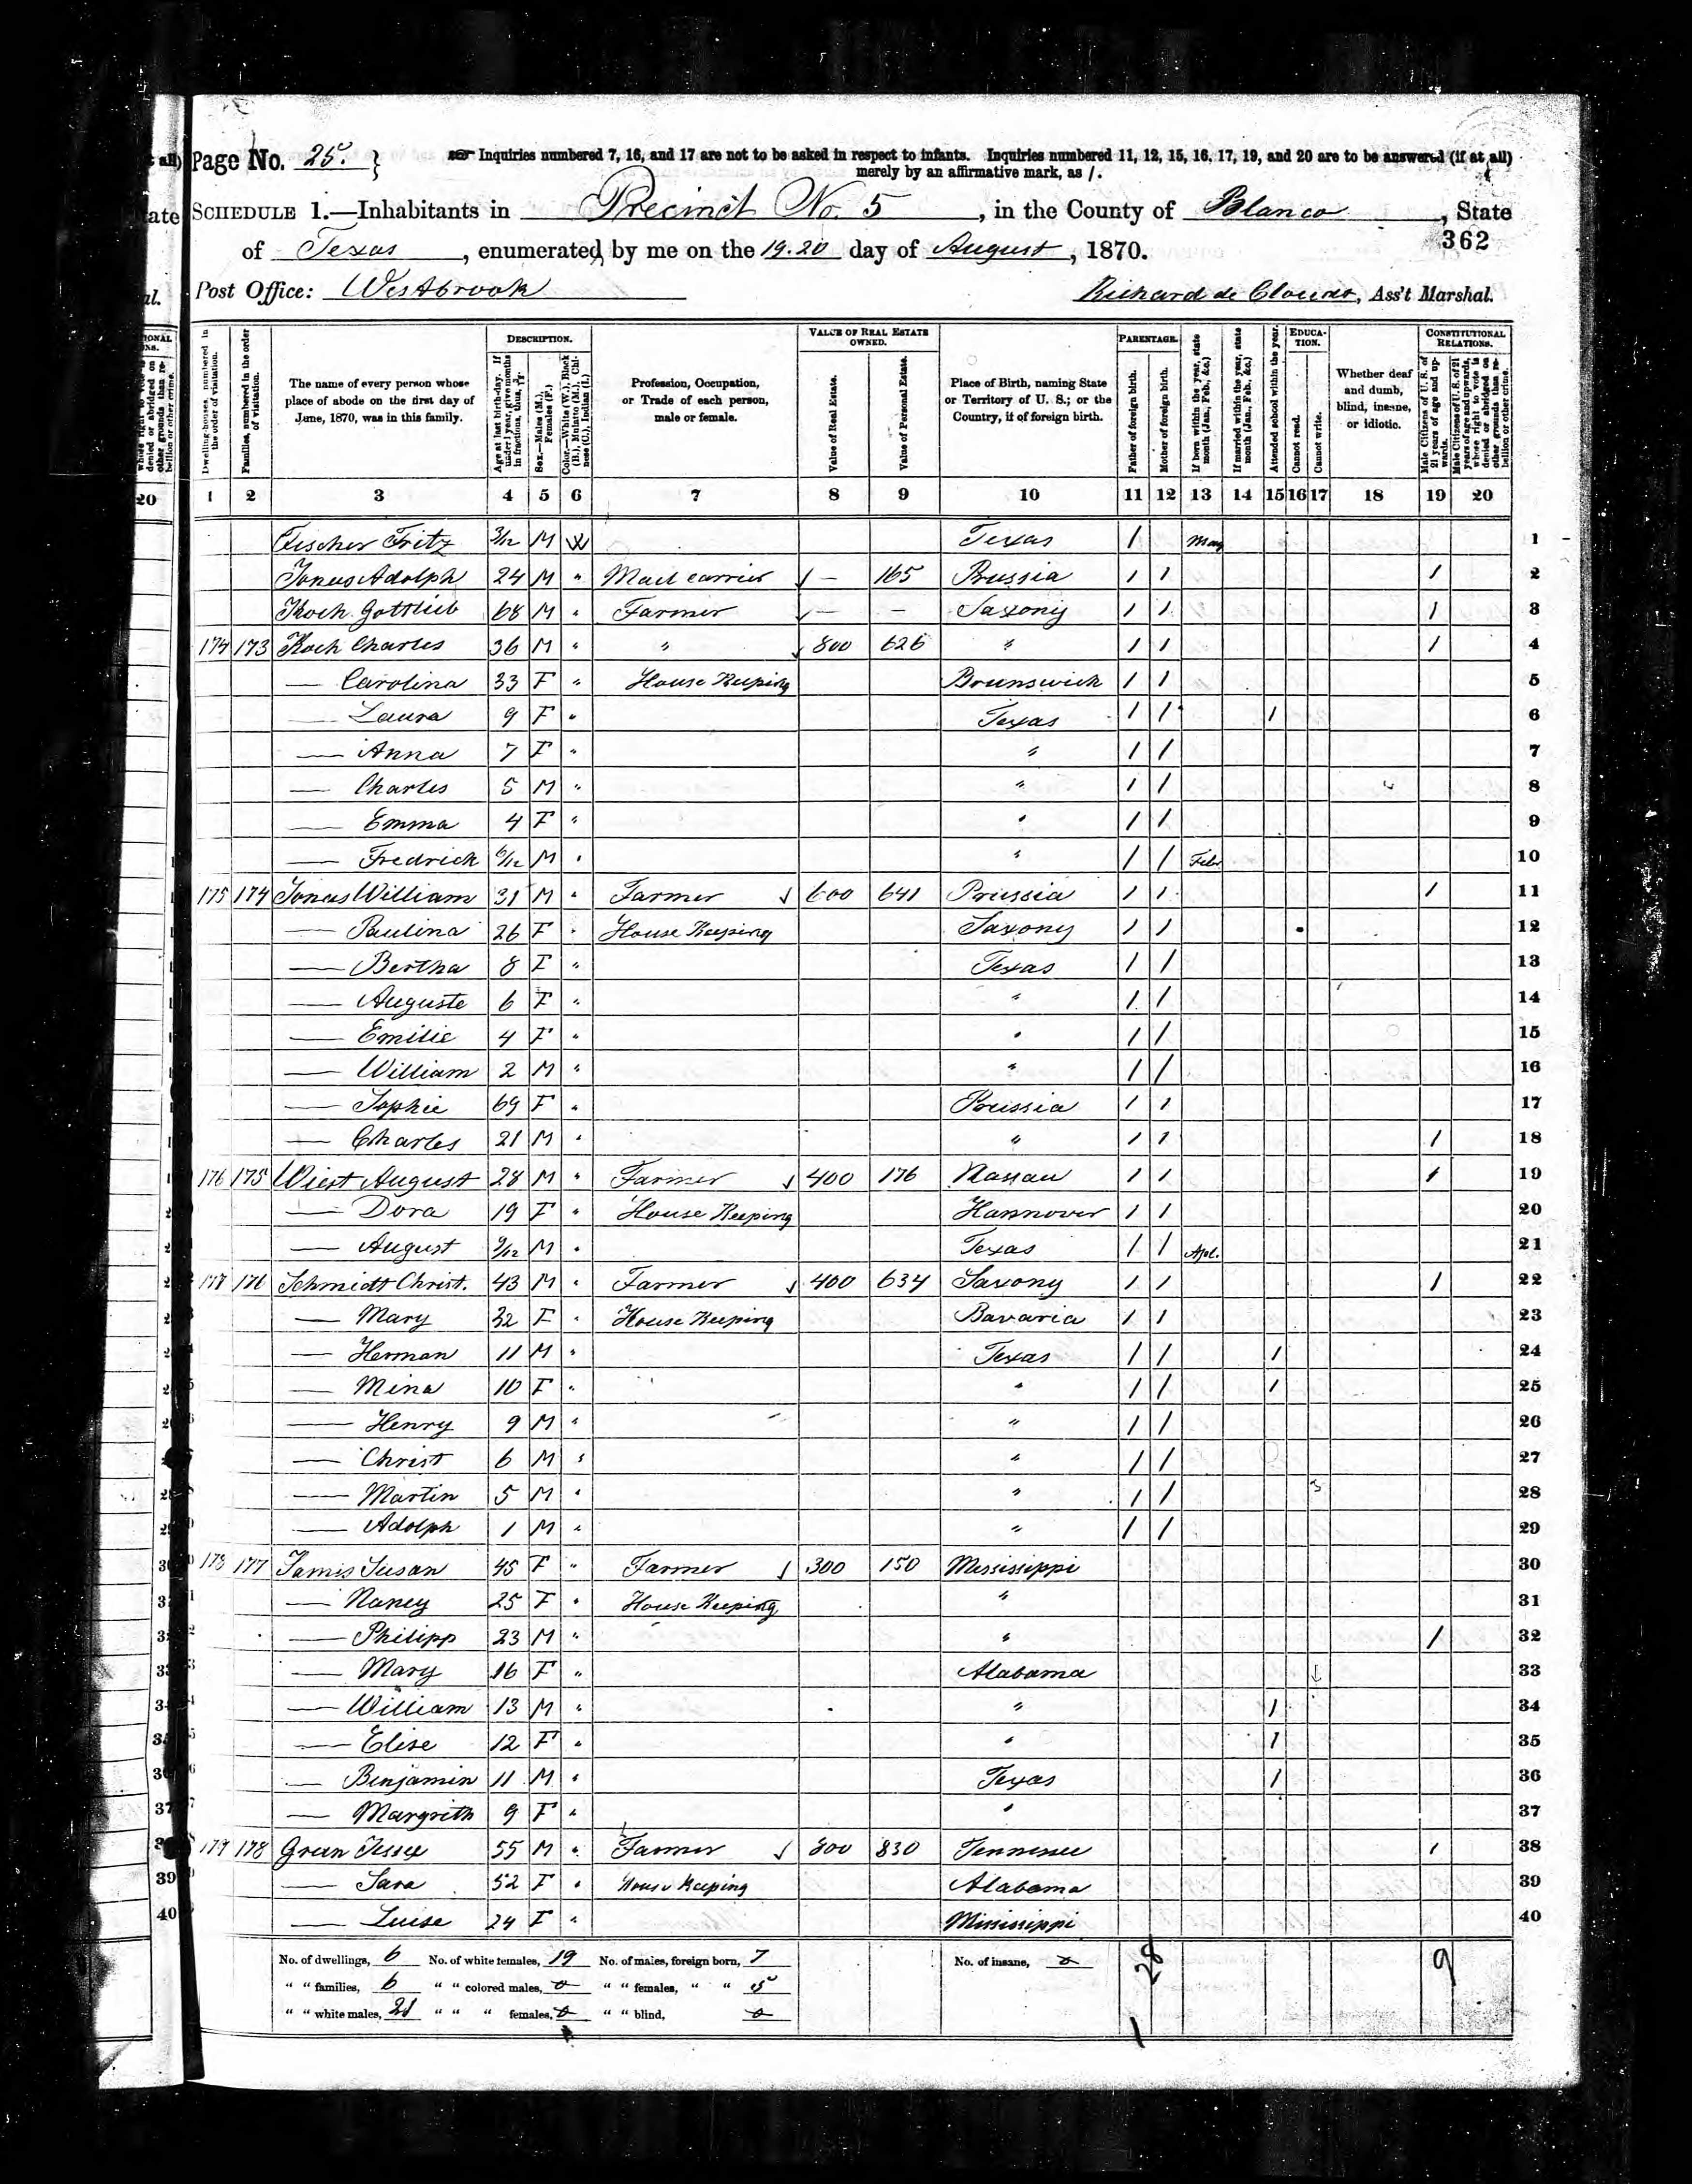 Page No. 25.
Inquiries numbered 7, 16, and 17 are not to be asked in respect to infants. Inquiries numbered 11, 12, 15, 16, 17, 19, and 20 are to be answered (if at all)
merely by an affirmative mark, as /.
SCHEDULE 1.—Inhabitants in Precinct No. 5, in the County of Blanco, State
of Texas, enumerated by me on the 19.20 day of August, 1870.
362
Post Office: Westbrook
Richard de, Ass't Marshal.
Dwelling-houses, numbered in the order of visitation.
Families, numbered in the order of visitation.
The name of every person whose place of abode on the first day of June, 1870, was in this family.
DESCRIPTION.
Age at last birth-day. If under 1 year, give months in fractions, thus, 3/12
Sex.—Males (M.), Females (F.)
Color.—White (W.), Black (B.), Mulatto (M.), Chinese (C.), Indian (I.)
Profession, Occupation, or Trade of each person, male or female.
VALUE OF REAL ESTATE OWNED.
Value of Real Estate.
Value of Personal Estate.
Place of Birth, naming State or Territory of U. S.; or the Country, if of foreign birth.
PARENTAGE.
Father of foreign birth.
Mother of foreign birth.
If born within the year, state month (Jan., Feb., &c.)
If married within the year, state month (Jan., Feb., &c.)
Attended school within the year.
EDUCATION.
Cannot read.
Cannot write.
Whether deaf and dumb, blind, insane, or idiotic.
CONSTITUTIONAL RELATIONS.
Male Citizens of U. S. of 21 years of age and upwards.
Male Citizens of U. S. of 21 years of age and upwards, whose right to vote is denied or abridged on other grounds than rebellion or other crime.
1 2 3 4 5 6 7 8 9 10 11 12 13 14 15 16 17 18 19 20
Fischer Fritz 3/12 M W Texas / May 1
Jonas Adolph 24 M " Mail carrier — 165 Prussia / / / 2
Koch Gottlieb 68 M " Farmer — — Saxony / / / 3
174 173 Koch Charles 36 M " " 800 626 " / / / 4
— Carolina 33 F " House Keeping Brunswick / / 5
— Laura 9 F " Texas / / / 6
— Anna 7 F " " / / 7
— Charles 5 M " " / / 8
— Emma 4 F " " / / 9
— Fredrick 6/12 M " " / / Febr 10
175 174 Jonas William 31 M " Farmer 600 641 Prussia / / / 11
— Paulina 26 F " House Keeping Saxony / / 12
— Bertha 8 F " Texas / / 13
— Auguste 6 F " " / / 14
— Emilie 4 F " " / / 15
— William 2 M " " / / 16
— Sophie 69 F " Prussia / / 17
— Charles 21 M " " / / / 18
176 175 Wiest August 28 M " Farmer 400 176 Nassau / / / 19
— Dora 19 F " House Keeping Hannover / / 20
— August M " Texas / / Apl. 21
177 176 Schmidt Christ. 43 M " Farmer 400 634 Saxony / / / 22
— Mary 32 F " House Keeping Bavaria / / 23
— Herman 11 M " Texas / / / 24
— Mina 10 F " " / / / 25
— Henry 9 M " " / / 26
— Christ 6 M " " / / 27
— Martin 5 M " " / / 28
— Adolph 1 M " " / / 29
178 177 Susan 45 F " Farmer 300 150 Mississippi 30
— Nancy 25 F " House Keeping " 31
— Philipp 23 M " " / 32
— Mary 16 F " Alabama 33
— William 13 M " " / 34
— Elise 12 F " " / 35
— Benjamin 11 M " Texas / 36
— Margrith 9 F " " 37
179 178 Green Jesse 55 M " Farmer 300 830 Tennessee / 38
— Sara 52 F " House Keeping Alabama 39
— Luise 24 F " Mississippi 40
No. of dwellings, 6 No. of white females, 19 No. of males, foreign born, 7 No. of insane, 0 28 9
" " families, 6 " " colored males, 0 " " females, " " 5
" " white males, 21 " " " females, 0 " " blind, 0